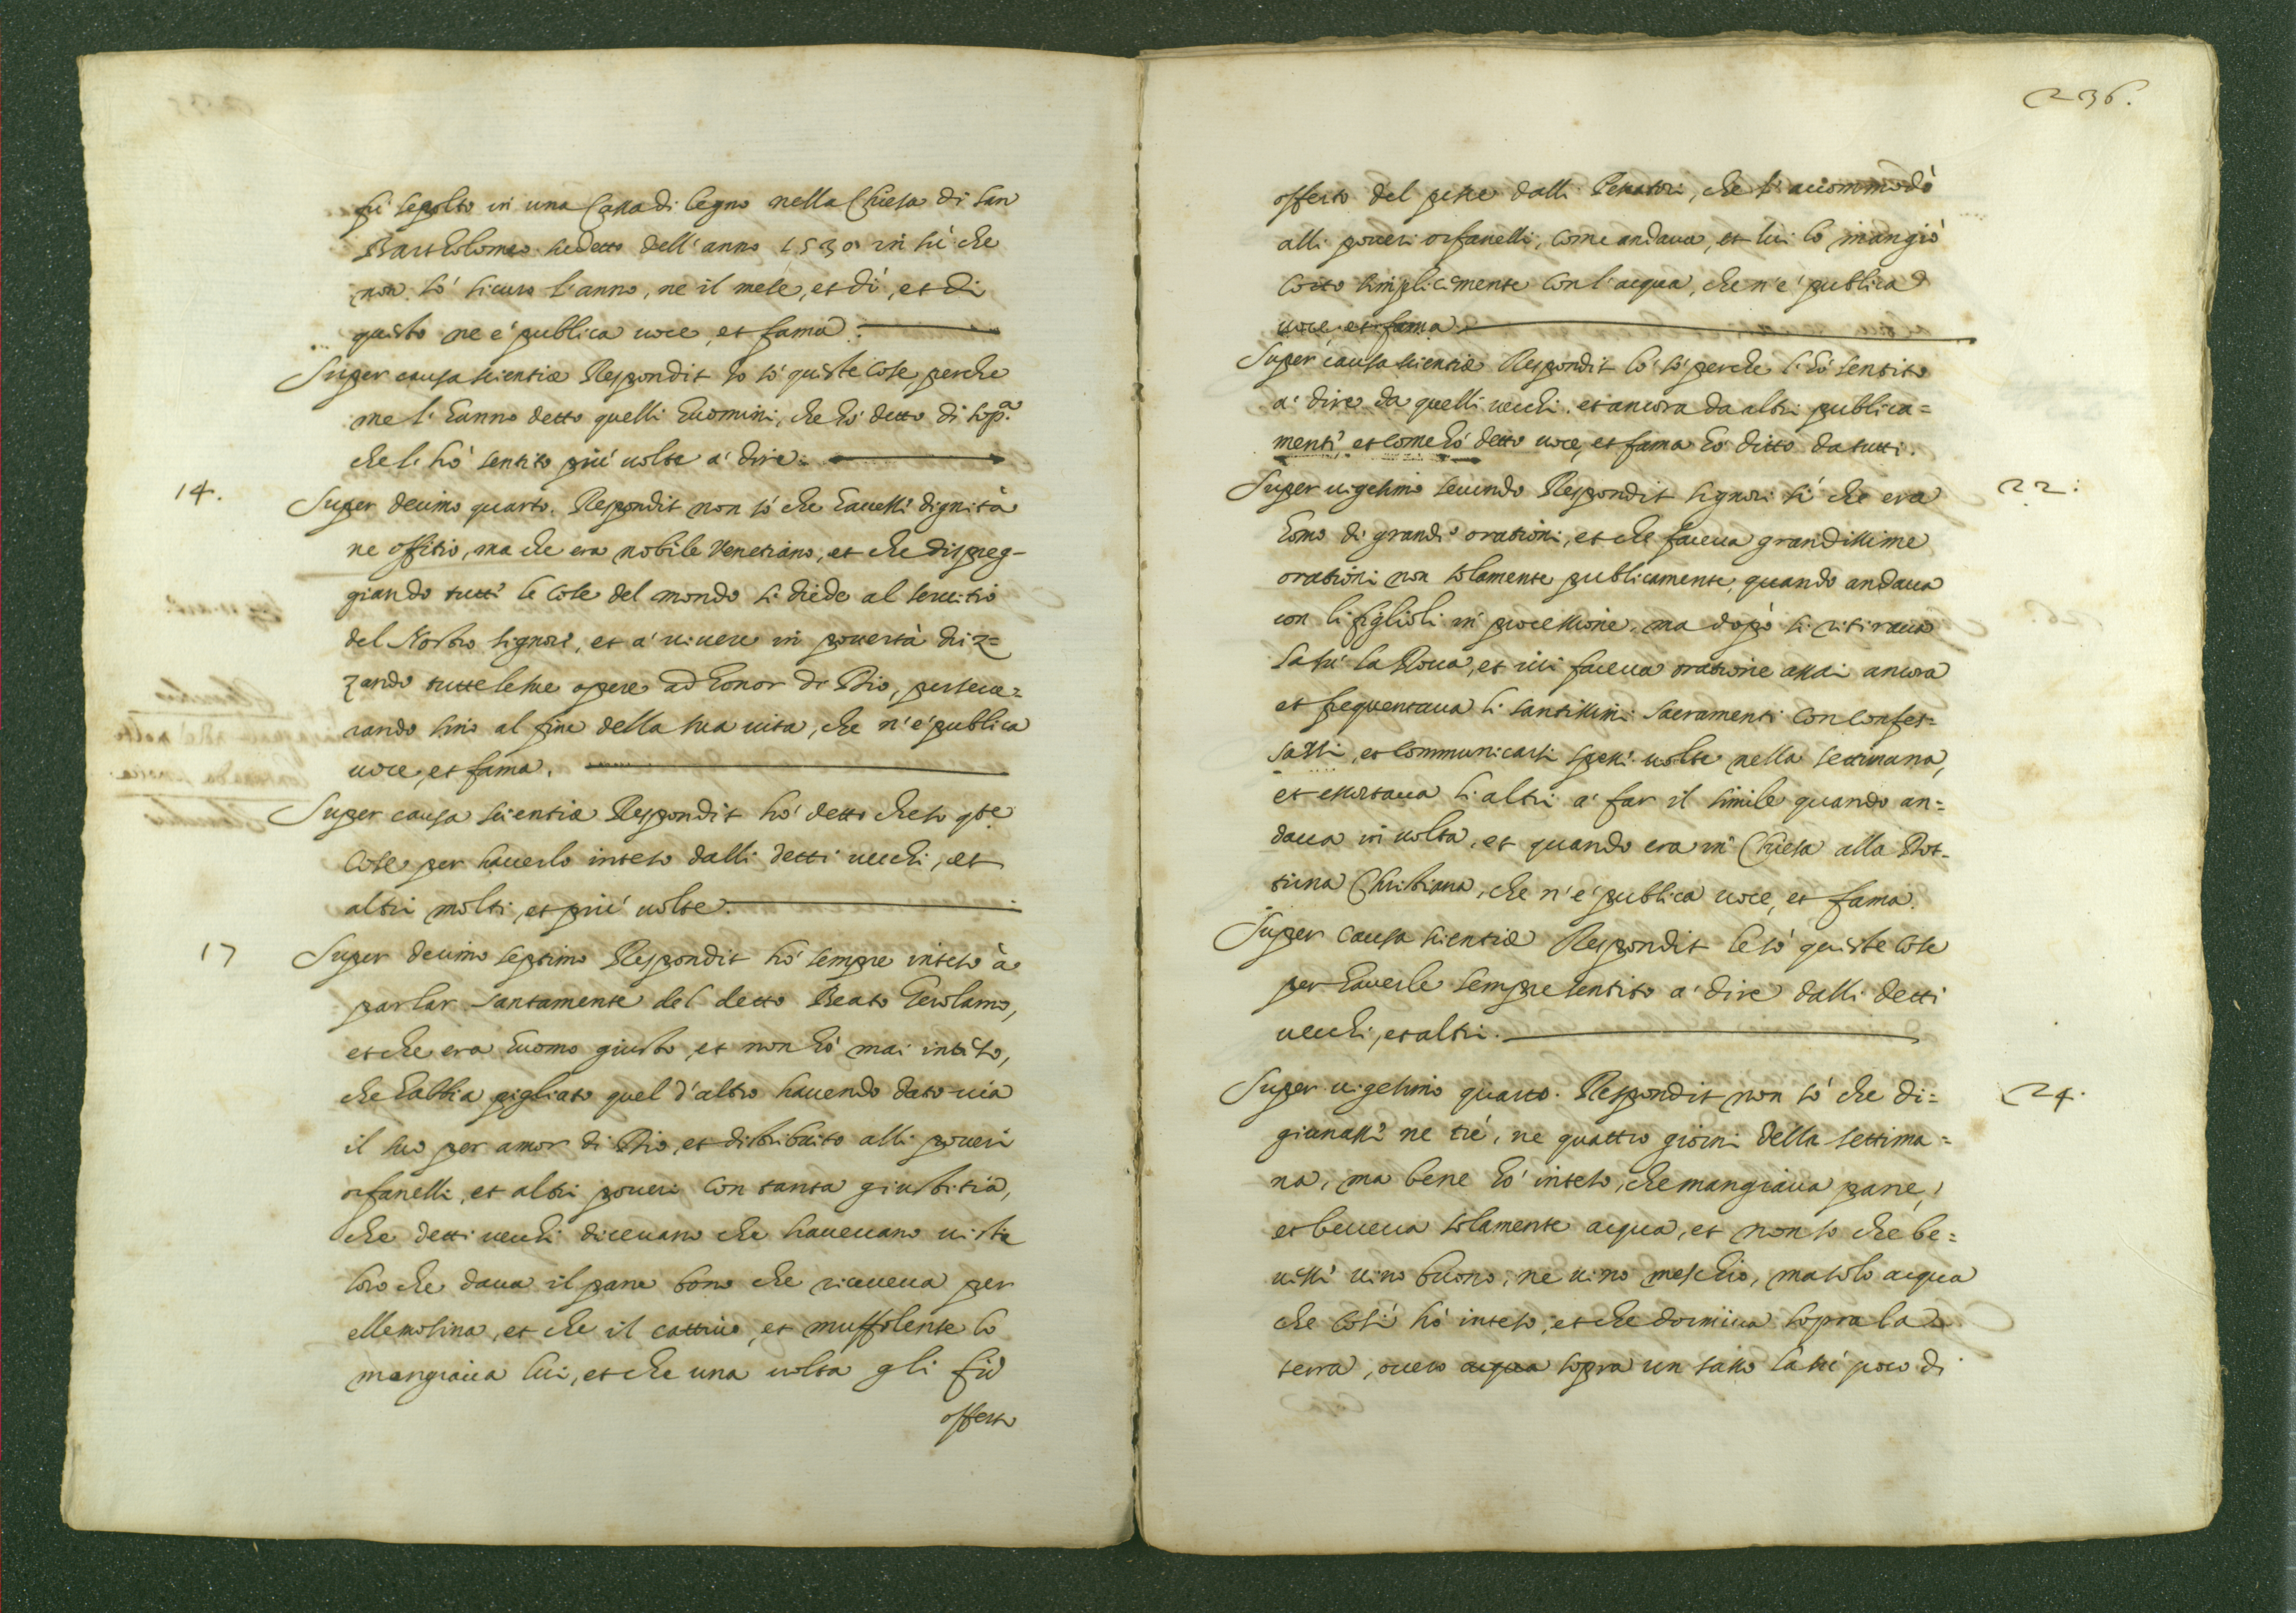 fù sepolto in una Cassa di legno nella Chiesa di San
Bartholomeo sudetto dell'anno 1530 in sù che
non sò sicuro l'anno, ne il mese, et dì, et di
questo ne è publica uoce, et fama.
Super causa scientiæ Respondit lo sò queste cose, perche
me l'hanno detto quelli huomini, che hò detto di sop.ª
che le hò sentito più uolte à dire.
14.
Super decimo quarto. Respondit non sò che hauesse dignità
ne offitio, ma che era nobile Venetiano, et che dispreg-
giando tutte le cose del mondo si diede al seruitio
del Nostro Signore, et à uiuere in pouertà driz=
zando tutte le sue opere ad honor di Dio, perseue=
rando sino al fine della sua uita, che n'è publica
uoce, et fama.
Super causa scientiæ Respondit hò detto che so q.te
cose per hauerlo inteso dalli detti uecchi, et
altri molti, et più uolte.
17
Super decimo septimo Respondit hò sempre inteso à
parlar santamente del detto Beato Gerolamo,
et che era huomo giusto, et non hò mai inteso,
che habbia pigliato quel d'altro hauendo dato uia
il suo per amor di Dio, et distribuito alli poueri
orfanelli, et altri poueri con tanta giustitia,
che detti uecchi diceuano che haueuano uisto
loro che daua il pane bono che riceueua per
ellemosina, et che il cattiuo, et muffolente lo
mangiaua lui, et che una uolta gli fù
offerto
236.
offerto del pesce dalli Pescatori, che l'accommodò
alli poueri orfanelli, come andaua, et lui lo mangiò
cotto simplicimente con l'acqua, che n'è publica
uoce, et fama.
Super causa scientiæ Respondit lo sò perche l'hò sentito
à dire da quelli uecchi, et ancora da altri publica=
mente et come hò detto uoce, et fama hò ditto da tutti.
22.
Super uigesimo secundo Respondit signori sì che era
homo di grande orationi, et che faceua grandissime
orationi non solamente publicamente, quando andaua
con li figlioli in processione, ma dopò si ritiraua
là sù la Rocca, et iui faceua oratione assai ancora
et frequentaua li santissimi Sacramenti con confes=
sarsi, et communicarsi spesse uolte nella settimana,
et essortaua li altri à far il simile quando an=
daua in uolta, et quando era in Chiesa alla Dot=
trina Christiana, che n'è publica uoce, et fama.
Super causa scientiæ Respondit le sò queste cose
per hauerle sempre sentito à dire dalli detti
uecchi, et altri.
24.
Super uigesimo quarto. Respondit non sò che di=
giunasse ne trè, ne quattro giorni della settima=
na, ma bene hò inteso, che mangiaua pane,
et beueua solamente acqua, et non so che be=
uesse uino buono, ne uino meschio, ma solo acqua
che così hò inteso, et che dormiua sopra la
terra, ouero acqua sopra un sasso là sù poco di